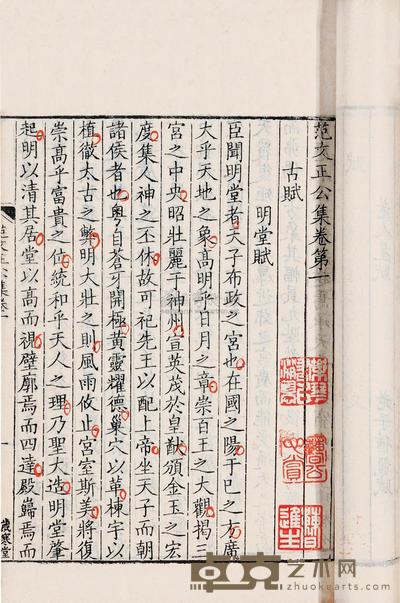 范文正公集卷第一
古賦
明堂賦
臣聞明堂者天子布政之宮也在國之陽于巳之方廣
大乎天地之象高明乎日月之章崇百王之大觀揭三
宮之中央昭壯麗于神州宣英茂於皇猷頒金玉之宏
度集人神之丕休故可祀先王以配上帝坐天子而朝
諸侯者也粵自蒼牙開極黃靈耀德巢穴以革棟宇以
植徹太古之弊明大壯之則風雨攸止宮室斯美將復
崇高乎富貴之位統和乎天人之理乃聖大造明堂肇
起明以清其居堂以高而視壁廓焉而四達殿巋焉而
范文正公集卷一
一
歲寒堂
艺术网